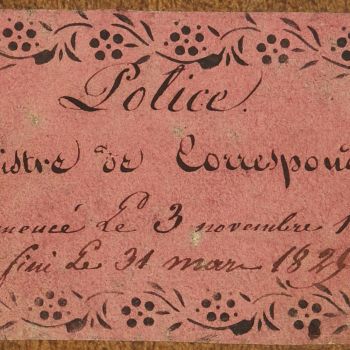 Police.
istre de Correspon
mencé Le 3 novembre 1
fini Le 31 mars 1829